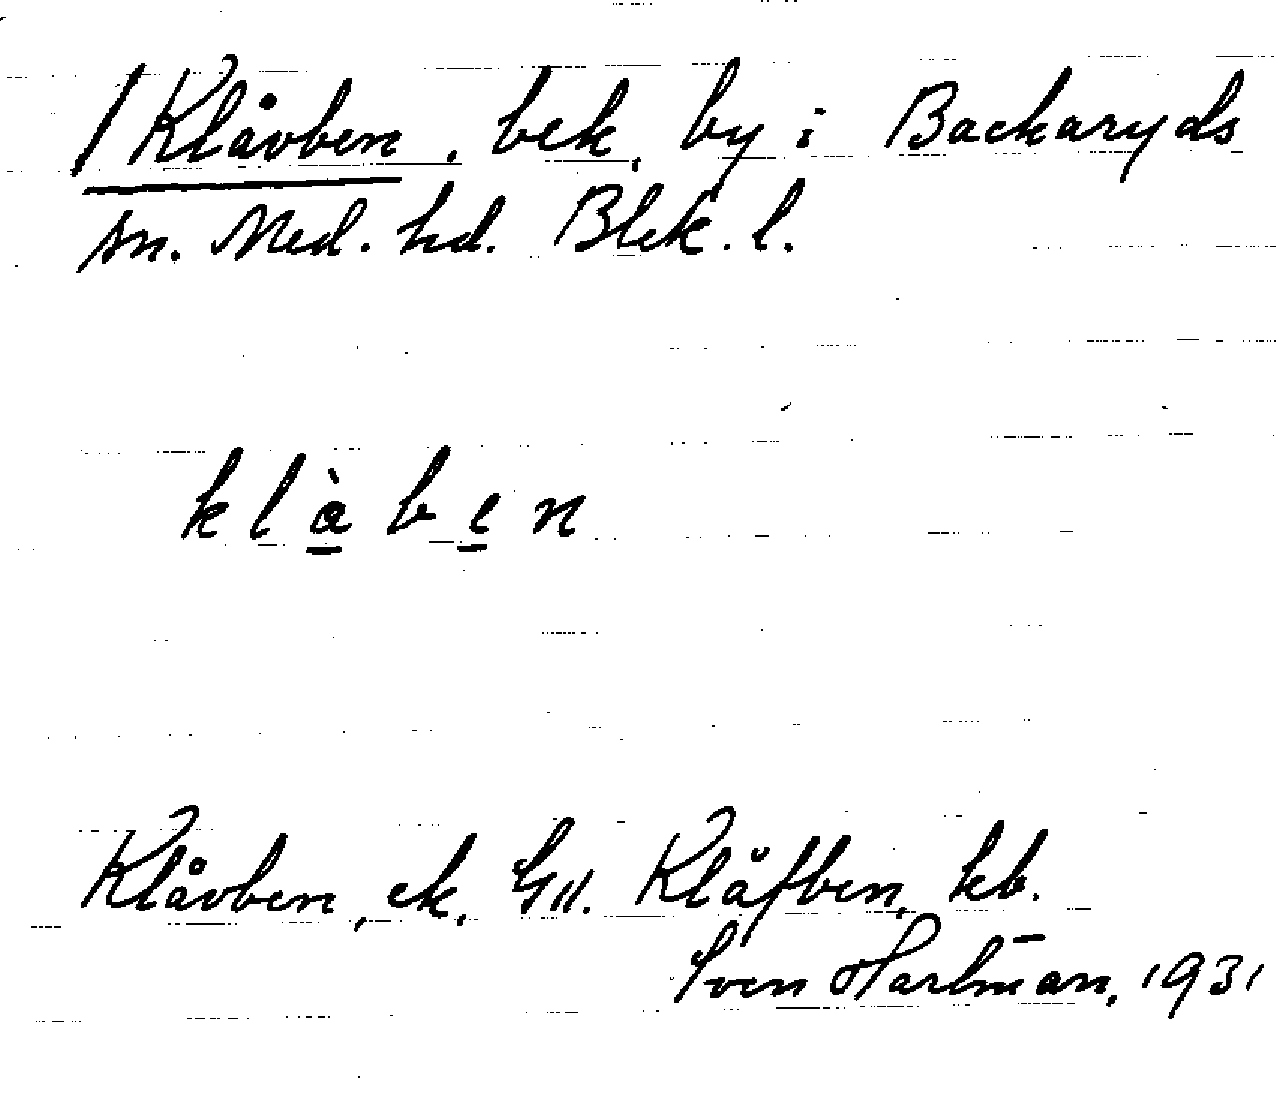 /Klåvben, bek. by i Backaryds
sn. Med. hd. Blek. l.
klàben
Klåvben, ek. Gll. Kläfben, kb.
Sven Hartman, 1931